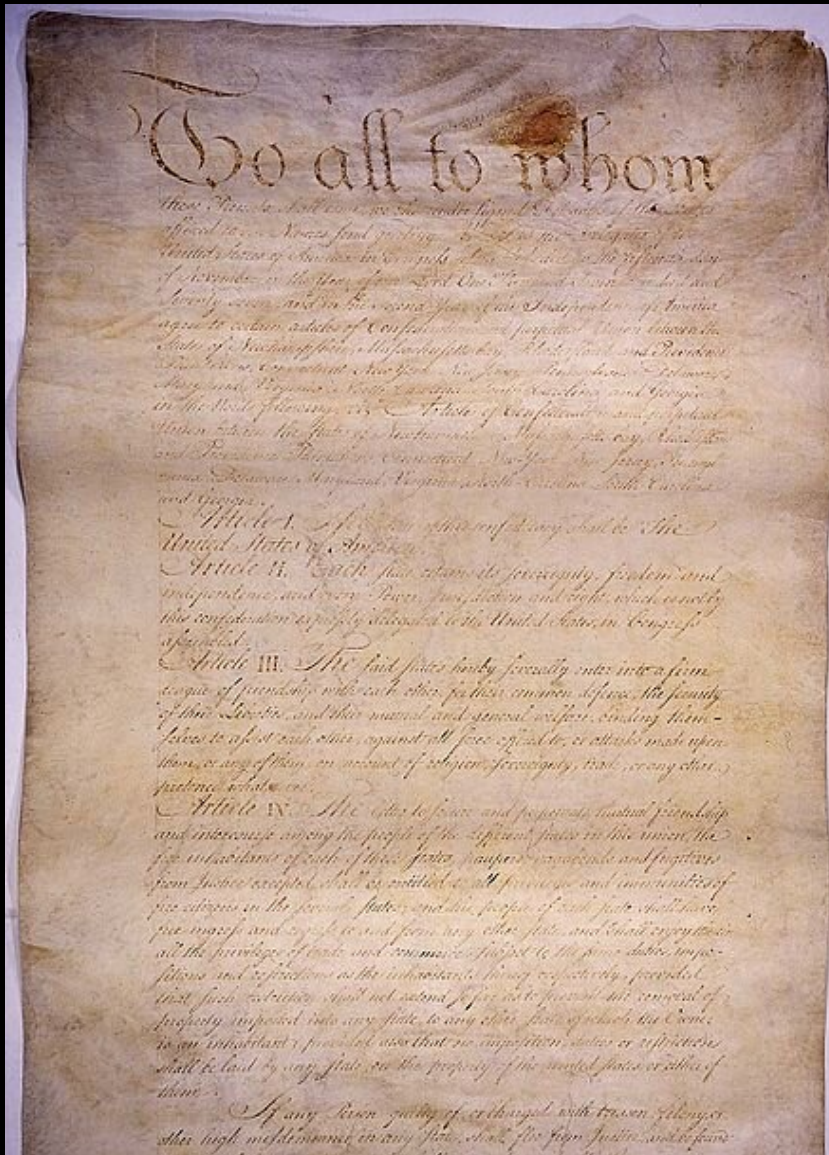 To all to whom
these Presents shall come, we the under signed Delegates of the States
affixed to our Names send greeting. Whereas the Delegates of the
United States of America in Congress assembled did on the fifteenth day
of November in the Year of our Lord One Thousand Seven Hundred and
Seventy seven, and in the Second Year of the Independence of America
agree to certain articles of Confederation and perpetual Union between the
States of Newhampshire, Massachusetts-bay, Rhodeisland and Providence
Plantations, Connecticut, New York, New Jersey, Pennsylvania, Delaware,
Maryland, Virginia, North-Carolina, South-Carolina, and Georgia
in the Words following, viz. Articles of Confederation and perpetual
Union between the States of Newhampshire, Massachusetts-bay, Rhodeisland
and Providence Plantations, Connecticut, New-York, New-Jersey, Pennsyl-
vania, Delaware, Maryland, Virginia, North-Carolina, South-Carolina
and Georgia.
Article I. The Stile of this confederacy shall be "The
United States of America."
Article II. Each state retains its sovereignty, freedom and
independence, and every Power, Jurisdiction and right, which is not by
this confederation expressly delegated to the United States, in Congress
assembled.
Article III. The said states hereby severally enter into a firm
league of friendship with each other, for their common defence, the security
of their Liberties, and their mutual and general welfare, binding them-
selves to assist each other, against all force offered to, or attacks made upon
them, or any of them, on account of religion, sovereignty, trade, or any other
pretence whatever.
Article IV. The better to secure and perpetuate mutual friendship
and intercourse among the people of the different states in this union, the
free inhabitants of each of these states, paupers, vagabonds and fugitives
from Justice excepted, shall be entitled to all privileges and immunities of
free citizens in the several states; and the people of each state shall have
free ingress and regress to and from any other state, and shall enjoy therein
all the privileges of trade and commerce, subject to the same duties, impo-
sitions and restrictions as the inhabitants thereof respectively, provided
that such restriction shall not extend so far as to prevent the removal of
property imported into any state, to any other state of which the Owner
is an inhabitant; provided also that no imposition, duties or restriction
shall be laid by any state, on the property of the united states, or either of
them.
If any Person guilty of, or charged with treason, felony, or
other high misdemeanor in any state, shall flee from Justice, and be found